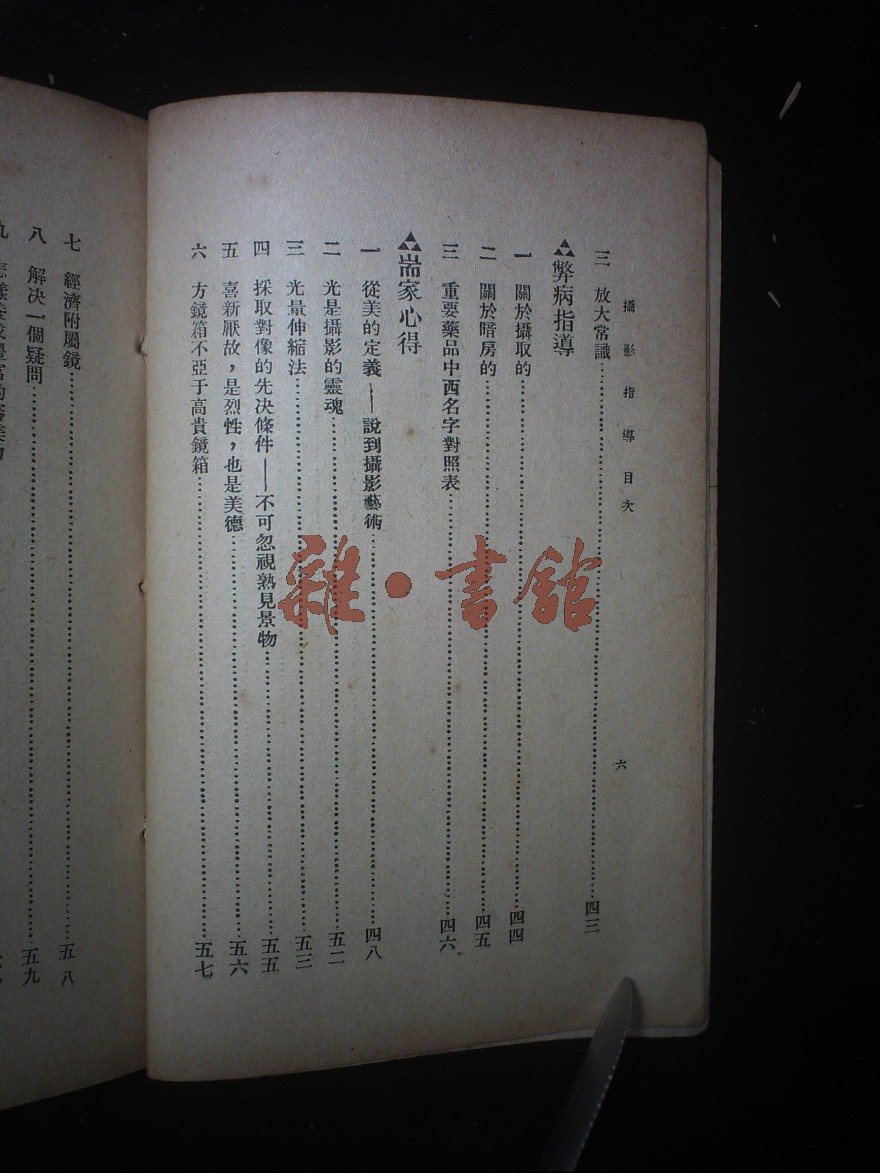 攝影指導目次
六
三 放大常識……四三
弊病指導
一 關於攝取的……四四
二 關於暗房的……四五
三 重要藥品中西名字對照表……四六
耑家心得
一 從美的定義——說到攝影藝術……四八
二 光是攝影的靈魂……五二
三 光量伸縮法……五三
四 採取對像的先决條件——不可忽視熟見景物……五五
五 喜新厭故，是烈性，也是美德……五六
六 方鏡箱不亞于高貴鏡箱……五七
七 經濟附屬鏡……五八
八 解决一個疑問……五九
雜·書館